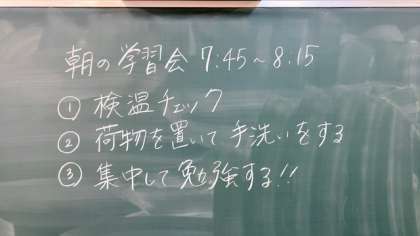 朝の学習会 7:45～8:15
① 検温チェック
② 荷物を置いて手洗いをする
③ 集中して勉強する!!